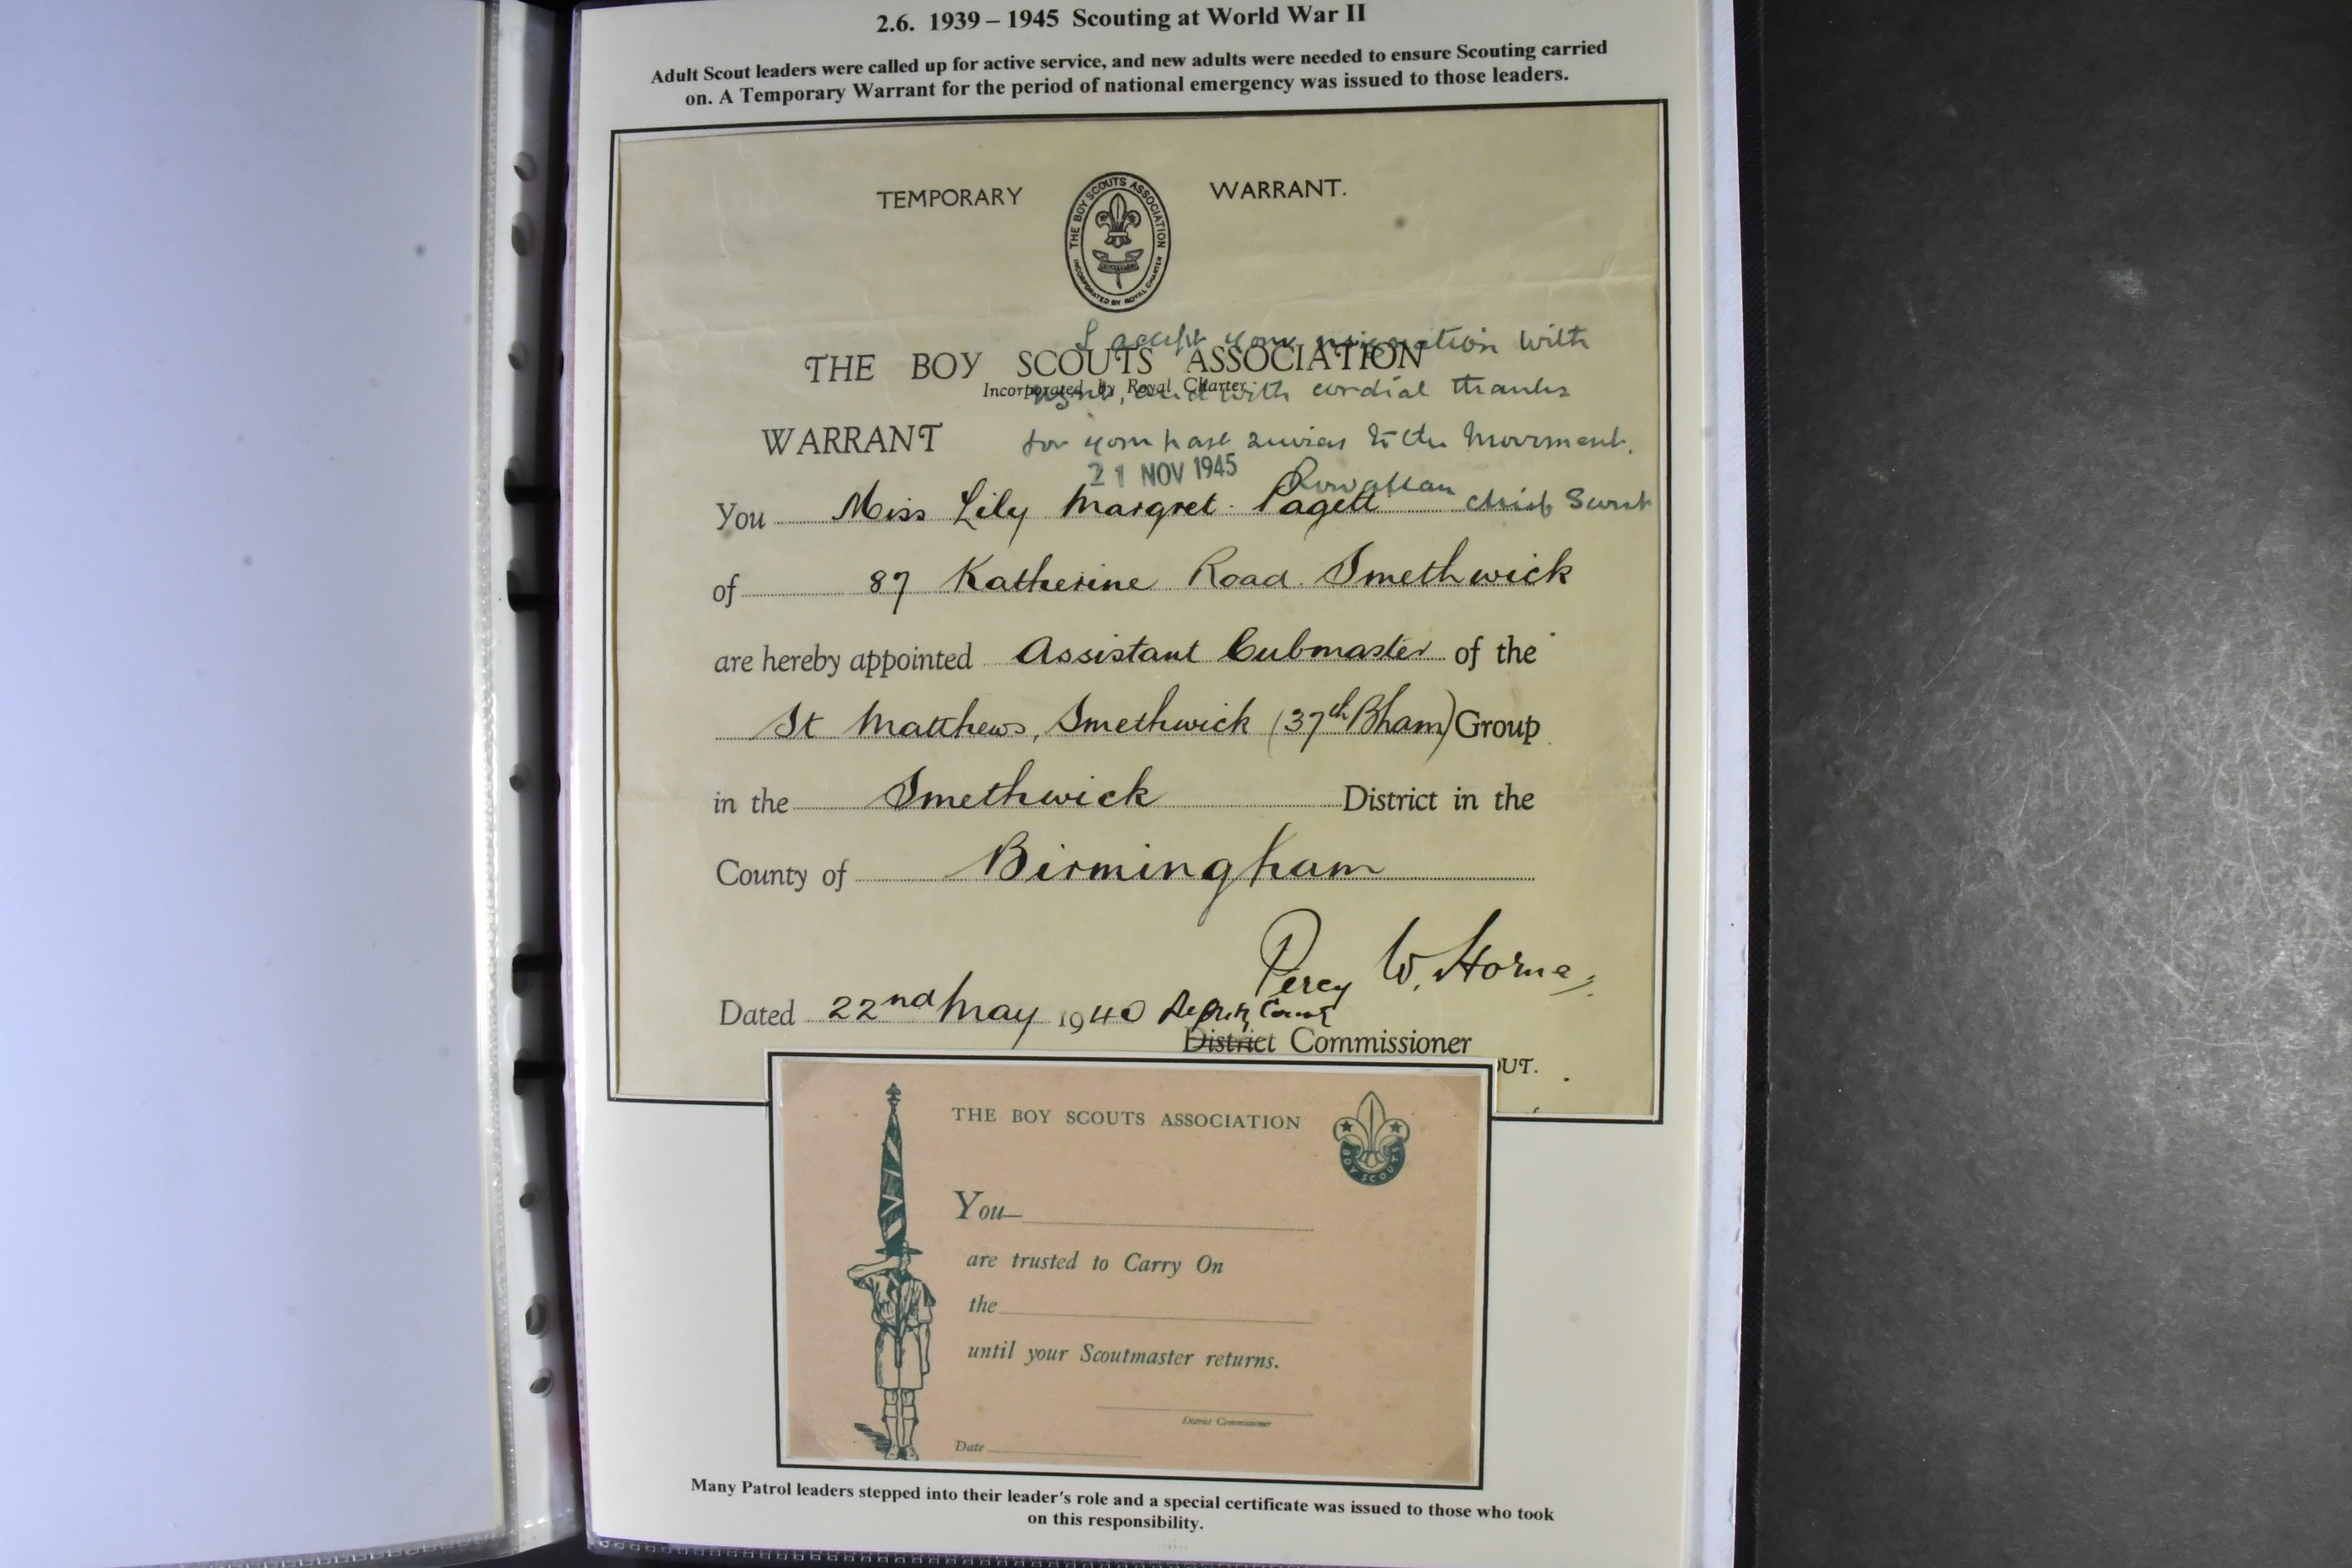 2.6. 1939 – 1945 Scouting at World War II
Adult Scout leaders were called up for active service, and new adults were needed to ensure Scouting carried
on. A Temporary Warrant for the period of national emergency was issued to those leaders.
TEMPORARY WARRANT.
THE BOY SCOUTS ASSOCIATION
INCORPORATED BY ROYAL CHARTER
I accept your resignation with
THE BOY SCOUTS ASSOCIATION
Incorporated by Royal Charter
regret, and with cordial thanks
WARRANT
for your past services to the Movement.
21 NOV 1945
Rowallan Chief Scout
You Miss Lily Margret Pagett
of 87 Katherine Road Smethwick
are hereby appointed Assistant Cubmaster of the
St Matthews, Smethwick (37th Bham) Group
in the Smethwick District in the
County of Birmingham
Percy W. Horne
Dated 22nd May 1940 Deputy County
District Commissioner
OUT.
THE BOY SCOUTS ASSOCIATION
BOY SCOUTS
You
are trusted to Carry On
the
until your Scoutmaster returns.
District Commissioner
Date
Many Patrol leaders stepped into their leader's role and a special certificate was issued to those who took
on this responsibility.